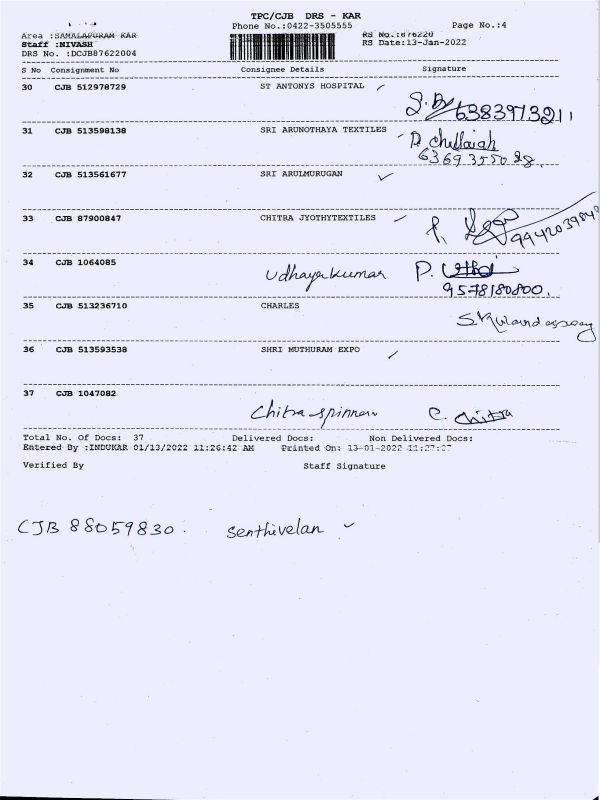 TPC/CJB DRS - KAR
Phone No.:0422-3505555 Page No.:4
Area :SAMALAPURAM KAR RS No.:676220
Staff :NIVASH RS Date:13-Jan-2022
DRS No. :DCJB87622004
S No Consignment No Consignee Details Signature
30 CJB 512978729 ST ANTONYS HOSPITAL
6383973211
31 CJB 513598138 SRI ARUNOTHAYA TEXTILES
D. Chellaiah
6369355028.
32 CJB 513561677 SRI ARULMURUGAN
33 CJB 87900847 CHITRA JYOTHYTEXTILES
34 CJB 1064085
Udhayakumar P.
9578180800.
35 CJB 513236710 CHARLES
36 CJB 513593538 SHRI MUTHURAM EXPO
37 CJB 1047082
Chitra spinners C. Chitra
Total No. Of Docs: 37 Delivered Docs: Non Delivered Docs:
Entered By :INDUKAR 01/13/2022 11:26:42 AM Printed On: 13-01-2022 11:27:07
Verified By Staff Signature
CJB 88059830. Senthivelan